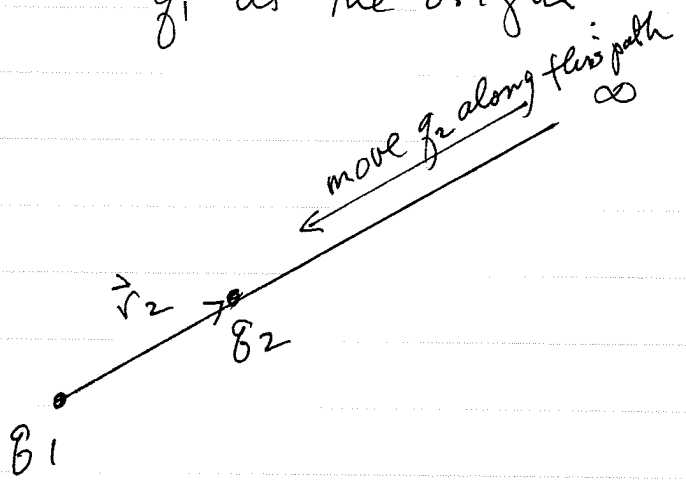 q1 as the origin
move q2 along this path
∞
r⃗2
q2
q1